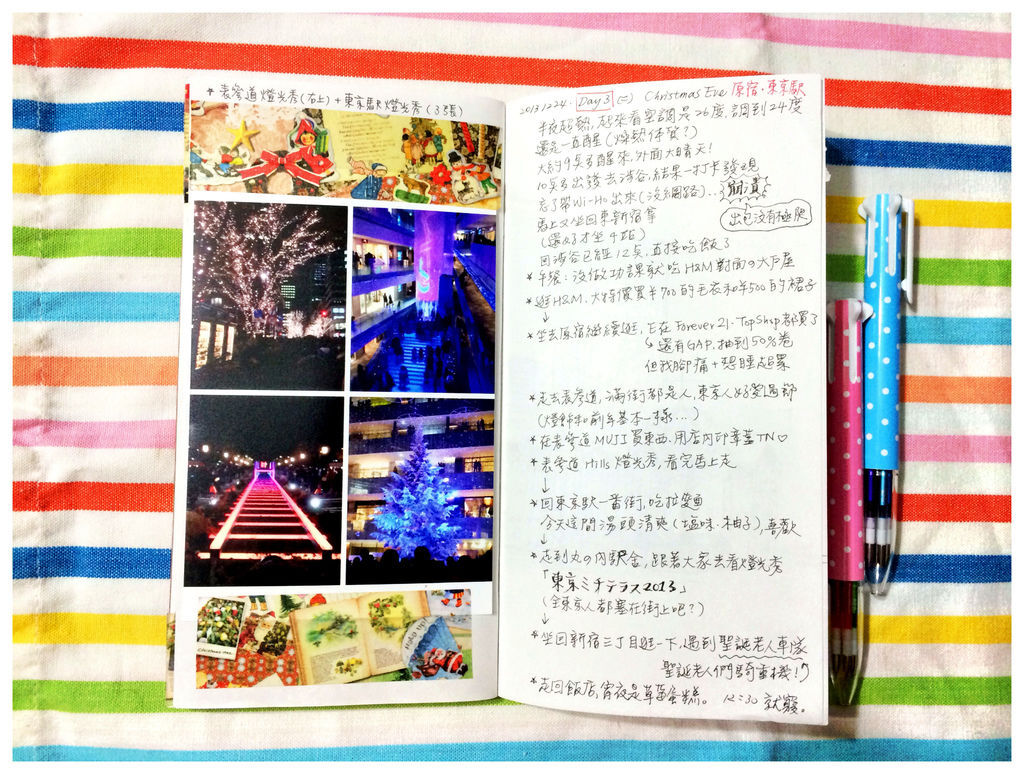 * 表參道燈光秀(右上) + 東京駅燈光秀 (3張)
20131224. Day 3 (二) Christmas Eve 原宿·東京駅
半夜超熱, 起來看空調是26度, 調到24度
還是一直醒 (燥熱体質?)
大約9點多醒來, 外面大晴天!
10點多出發去涉谷, 結果一打卡發現
忘了帶Wi-Ho出來 (沒網路)... 崩潰
出包沒有極限
馬上又坐回東新宿拿
(還好才坐4站)
回涉谷已經12點, 直接吃飯了
* 午餐: 沒做功課就吃H&M對面の大戶屋
* 逛H&M, 大特價買半700的毛衣和半500的裙子
↓
* 坐去原宿繼續逛, 在Forever 21. TopShop都買了
↳ 還有GAP, 抽到50%卷
但我腳痛+想睡超累
* 走去表參道, 滿街都是人, 東京人好愛過節
(燈飾和前年基本一樣...)
* 在表參道MUJI買東西. 用店內印章蓋TN♡
* 表參道Hills燈光秀, 看完馬上走
↓
* 回東京駅一番街, 吃拉麵
今天這間湯頭清爽 (塩味·柚子), 喜歡
↓
* 走到丸の內駅舍, 跟著大家去看燈光秀
「東京ミチテラス2013」
(全東京人都塞在街上吧?)
↓
* 坐回新宿三丁目逛一下, 遇到聖誕老人車隊
聖誕老人們騎重機!
* 走回飯店, 宵夜是草莓蛋糕。 12:30 就寢。
Christmas tree
HoHo Ho!